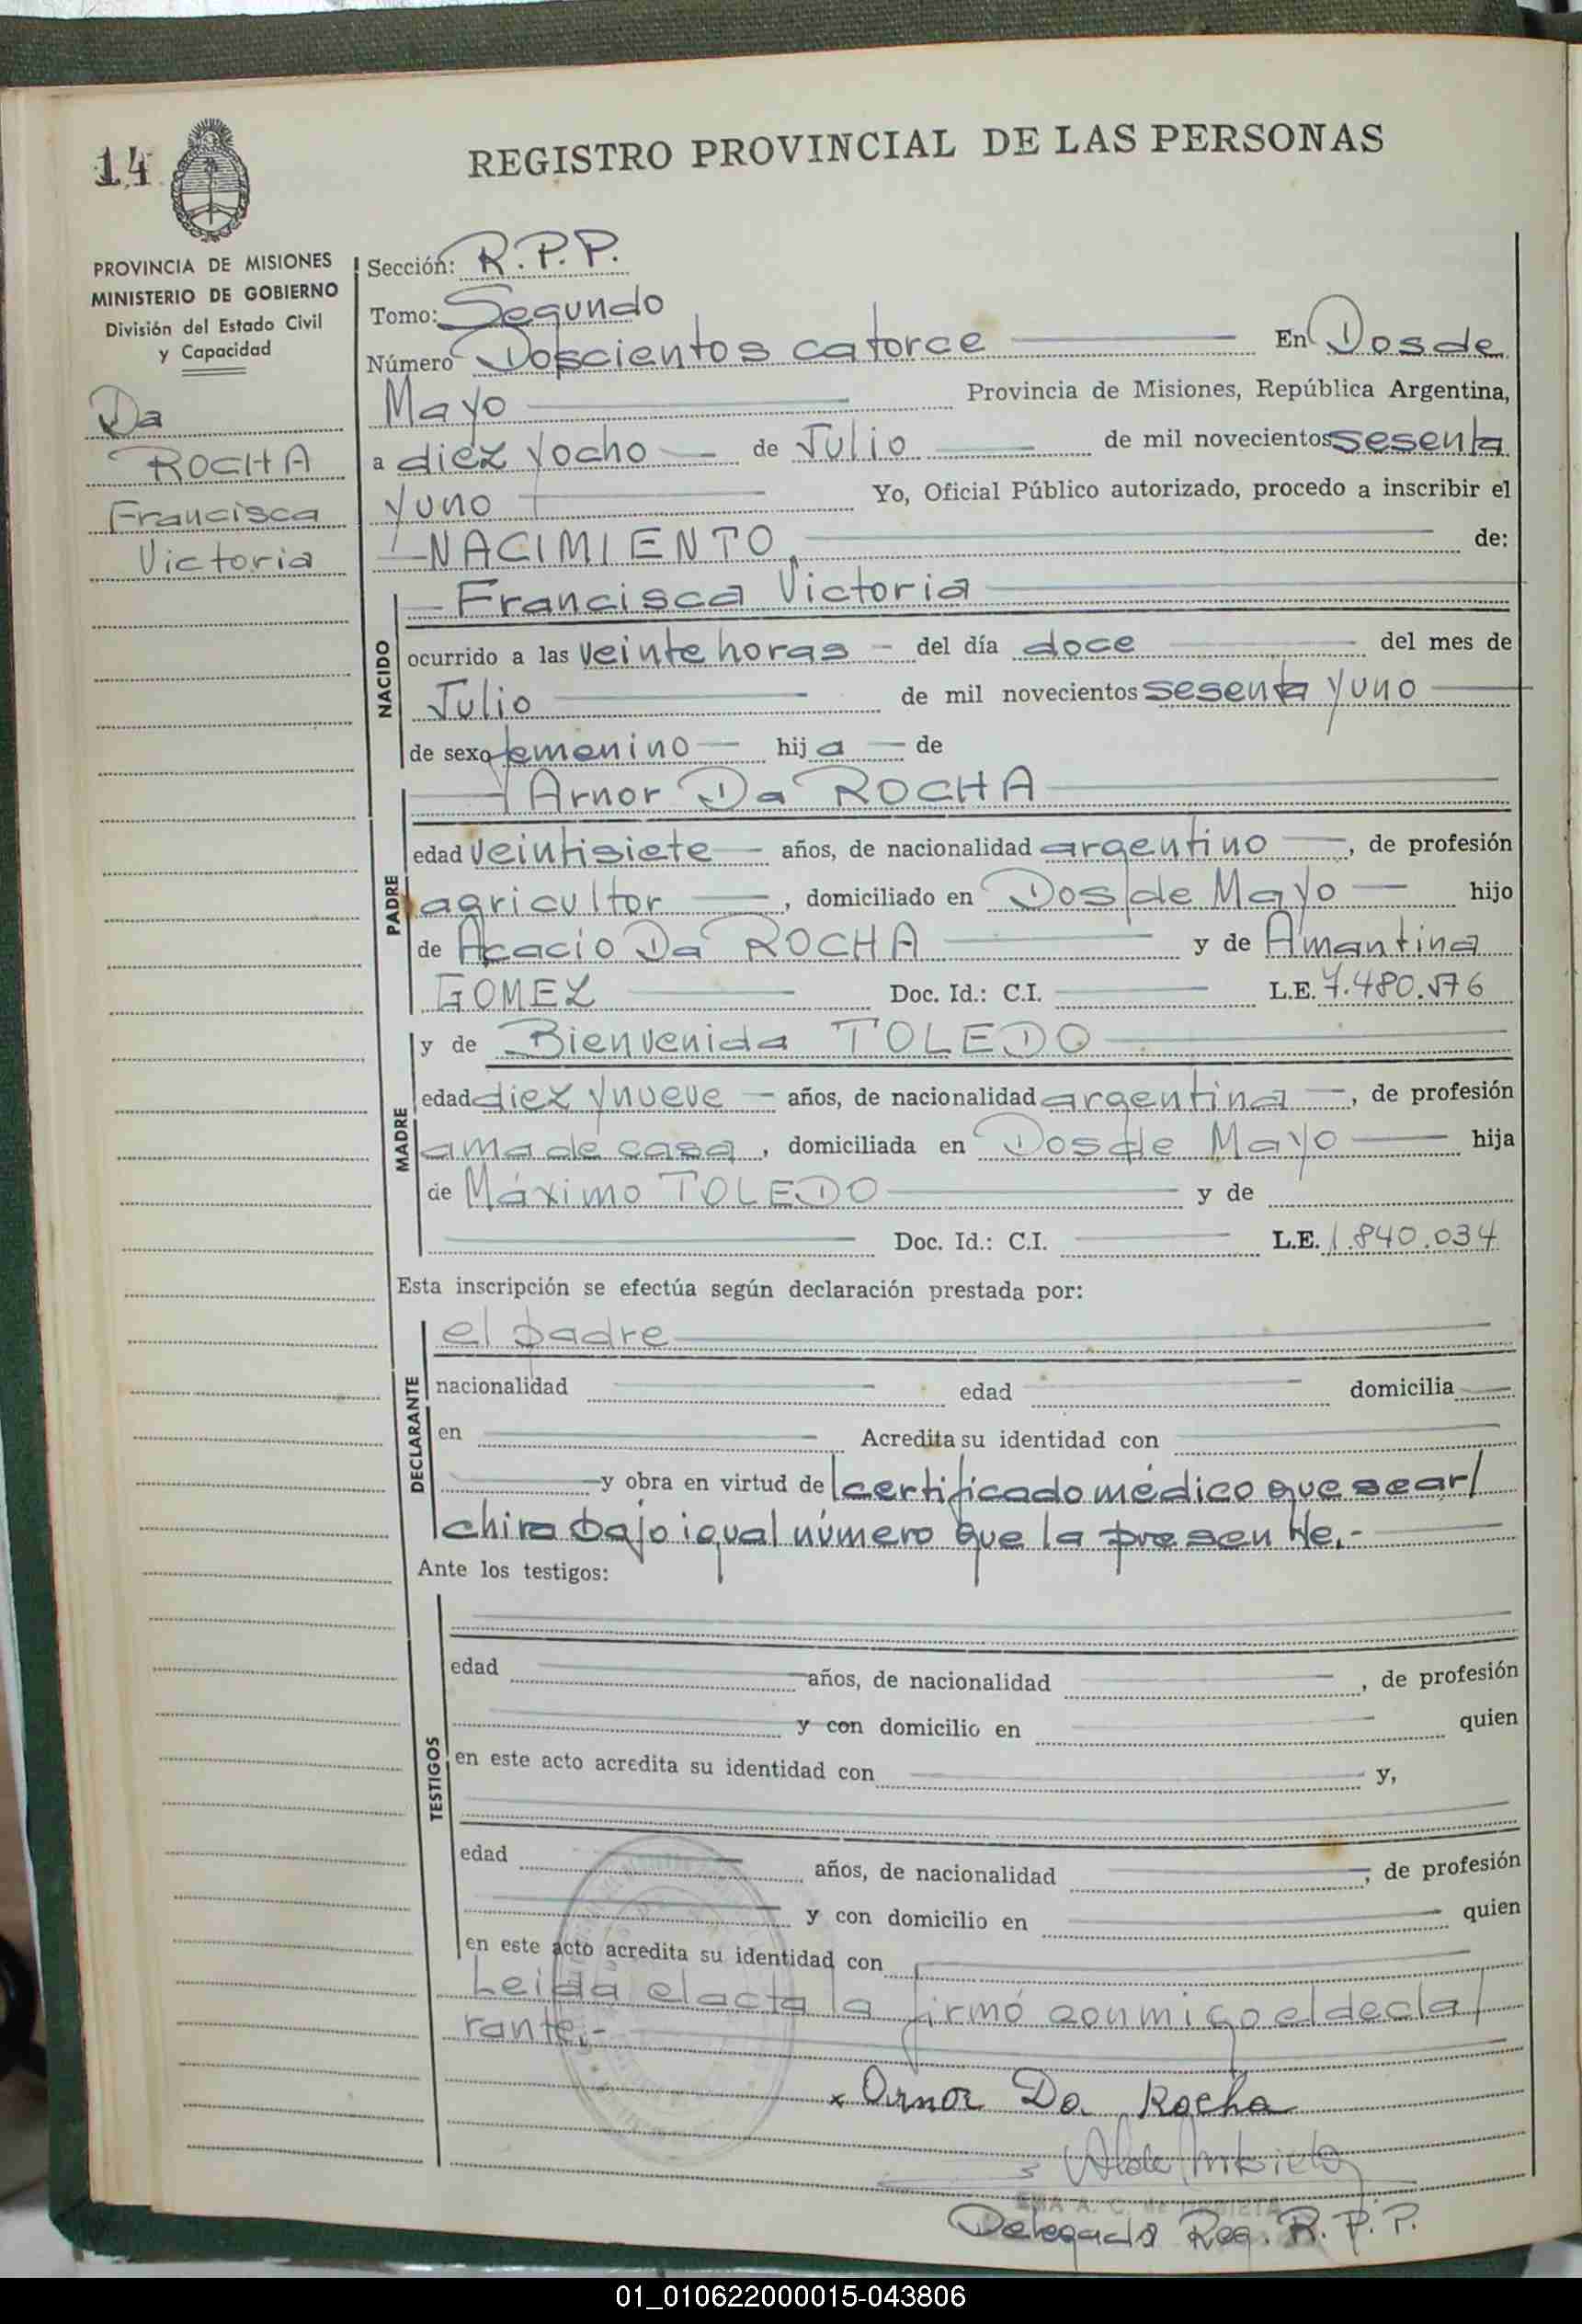 14
REGISTRO PROVINCIAL DE LAS PERSONAS
PROVINCIA DE MISIONES
MINISTERIO DE GOBIERNO
División del Estado Civil
y Capacidad
Da
ROCHA
Francisca
Victoria
Sección: R.P.P.
Tomo: Segundo
Número Doscientos catorce En Dos de
Mayo Provincia de Misiones, República Argentina,
a diez y ocho de Julio de mil novecientos sesenta
y uno Yo, Oficial Público autorizado, procedo a inscribir el
NACIMIENTO de:
NACIDO
Francisca Victoria
ocurrido a las veinte horas - del día doce del mes de
Julio de mil novecientos sesenta y uno
de sexo femenino hija de
PADRE
Arnor Da ROCHA
edad veintisiete años, de nacionalidad argentino, de profesión
agricultor, domiciliado en Dos de Mayo hijo
de Acacio Da ROCHA y de Amantina
GOMEZ Doc. Id.: C.I. L.E. 7.480.576
MADRE
y de Bienvenida TOLEDO
edad diez y nueve años, de nacionalidad argentina, de profesión
ama de casa, domiciliada en Dos de Mayo hija
de Máximo TOLEDO y de
Doc. Id.: C.I. L.E. 1.840.034
Esta inscripción se efectúa según declaración prestada por:
DECLARANTE
el padre
nacionalidad edad domicilia
en Acredita su identidad con
y obra en virtud de certificado médico que se ar/
chira bajo igual número que la presente.-
Ante los testigos:
TESTIGOS
edad años, de nacionalidad, de profesión
y con domicilio en quien
en este acto acredita su identidad con y,
edad años, de nacionalidad, de profesión
y con domicilio en quien
en este acto acredita su identidad con
Leida el acta la firmó conmigo el decla/
rante.-
x Arnor Da Rocha
Delegada Reg. R.P.P.
01_010622000015-043806